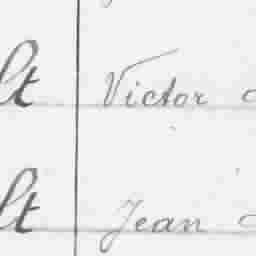 lt Victor
lt Jean